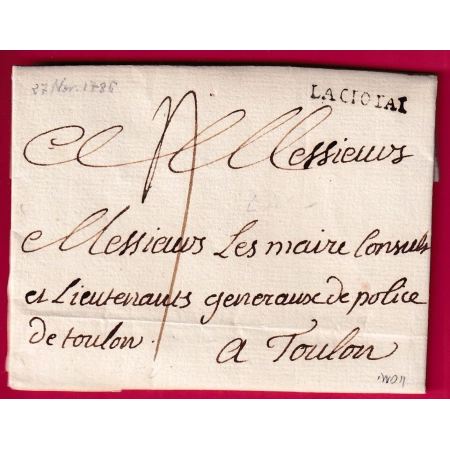 27 Nov. 1786
LACIOTAT
A Messieurs
Messieurs Les maire Consuls
et Lieutenants generaux de police
de toulon. a Toulon